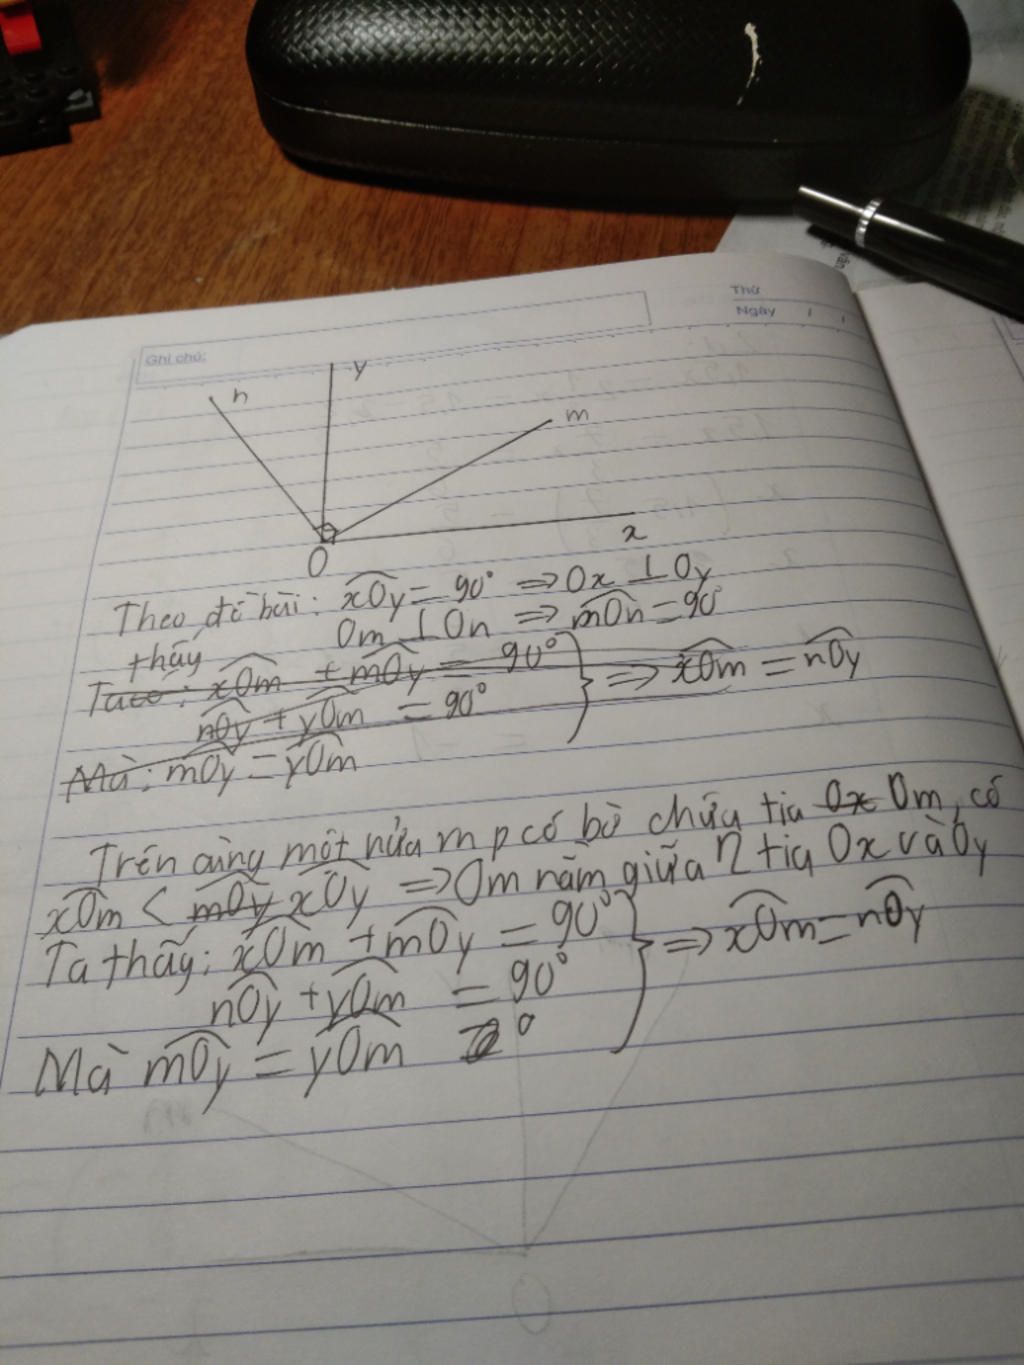 Thứ
Ngày / /
Ghi chú:
n
y
m
O
x
Theo đề bài: xOy = 90° => Ox ⊥ Oy
Om ⊥ On => mOn = 90°
thấy
Ta có: xOm + mOy = 90°
nOy + yOm = 90°
=> xOm = nOy
Mà: mOy = yOm
Trên cùng một nửa mp có bờ chứa tia Ox Om, có
xOm < mOy xOy => Om nằm giữa 2 tia Ox và Oy
Ta thấy: xOm + mOy = 90°
nOy + yOm = 90°
=> xOm = nOy
Mà mOy = yOm